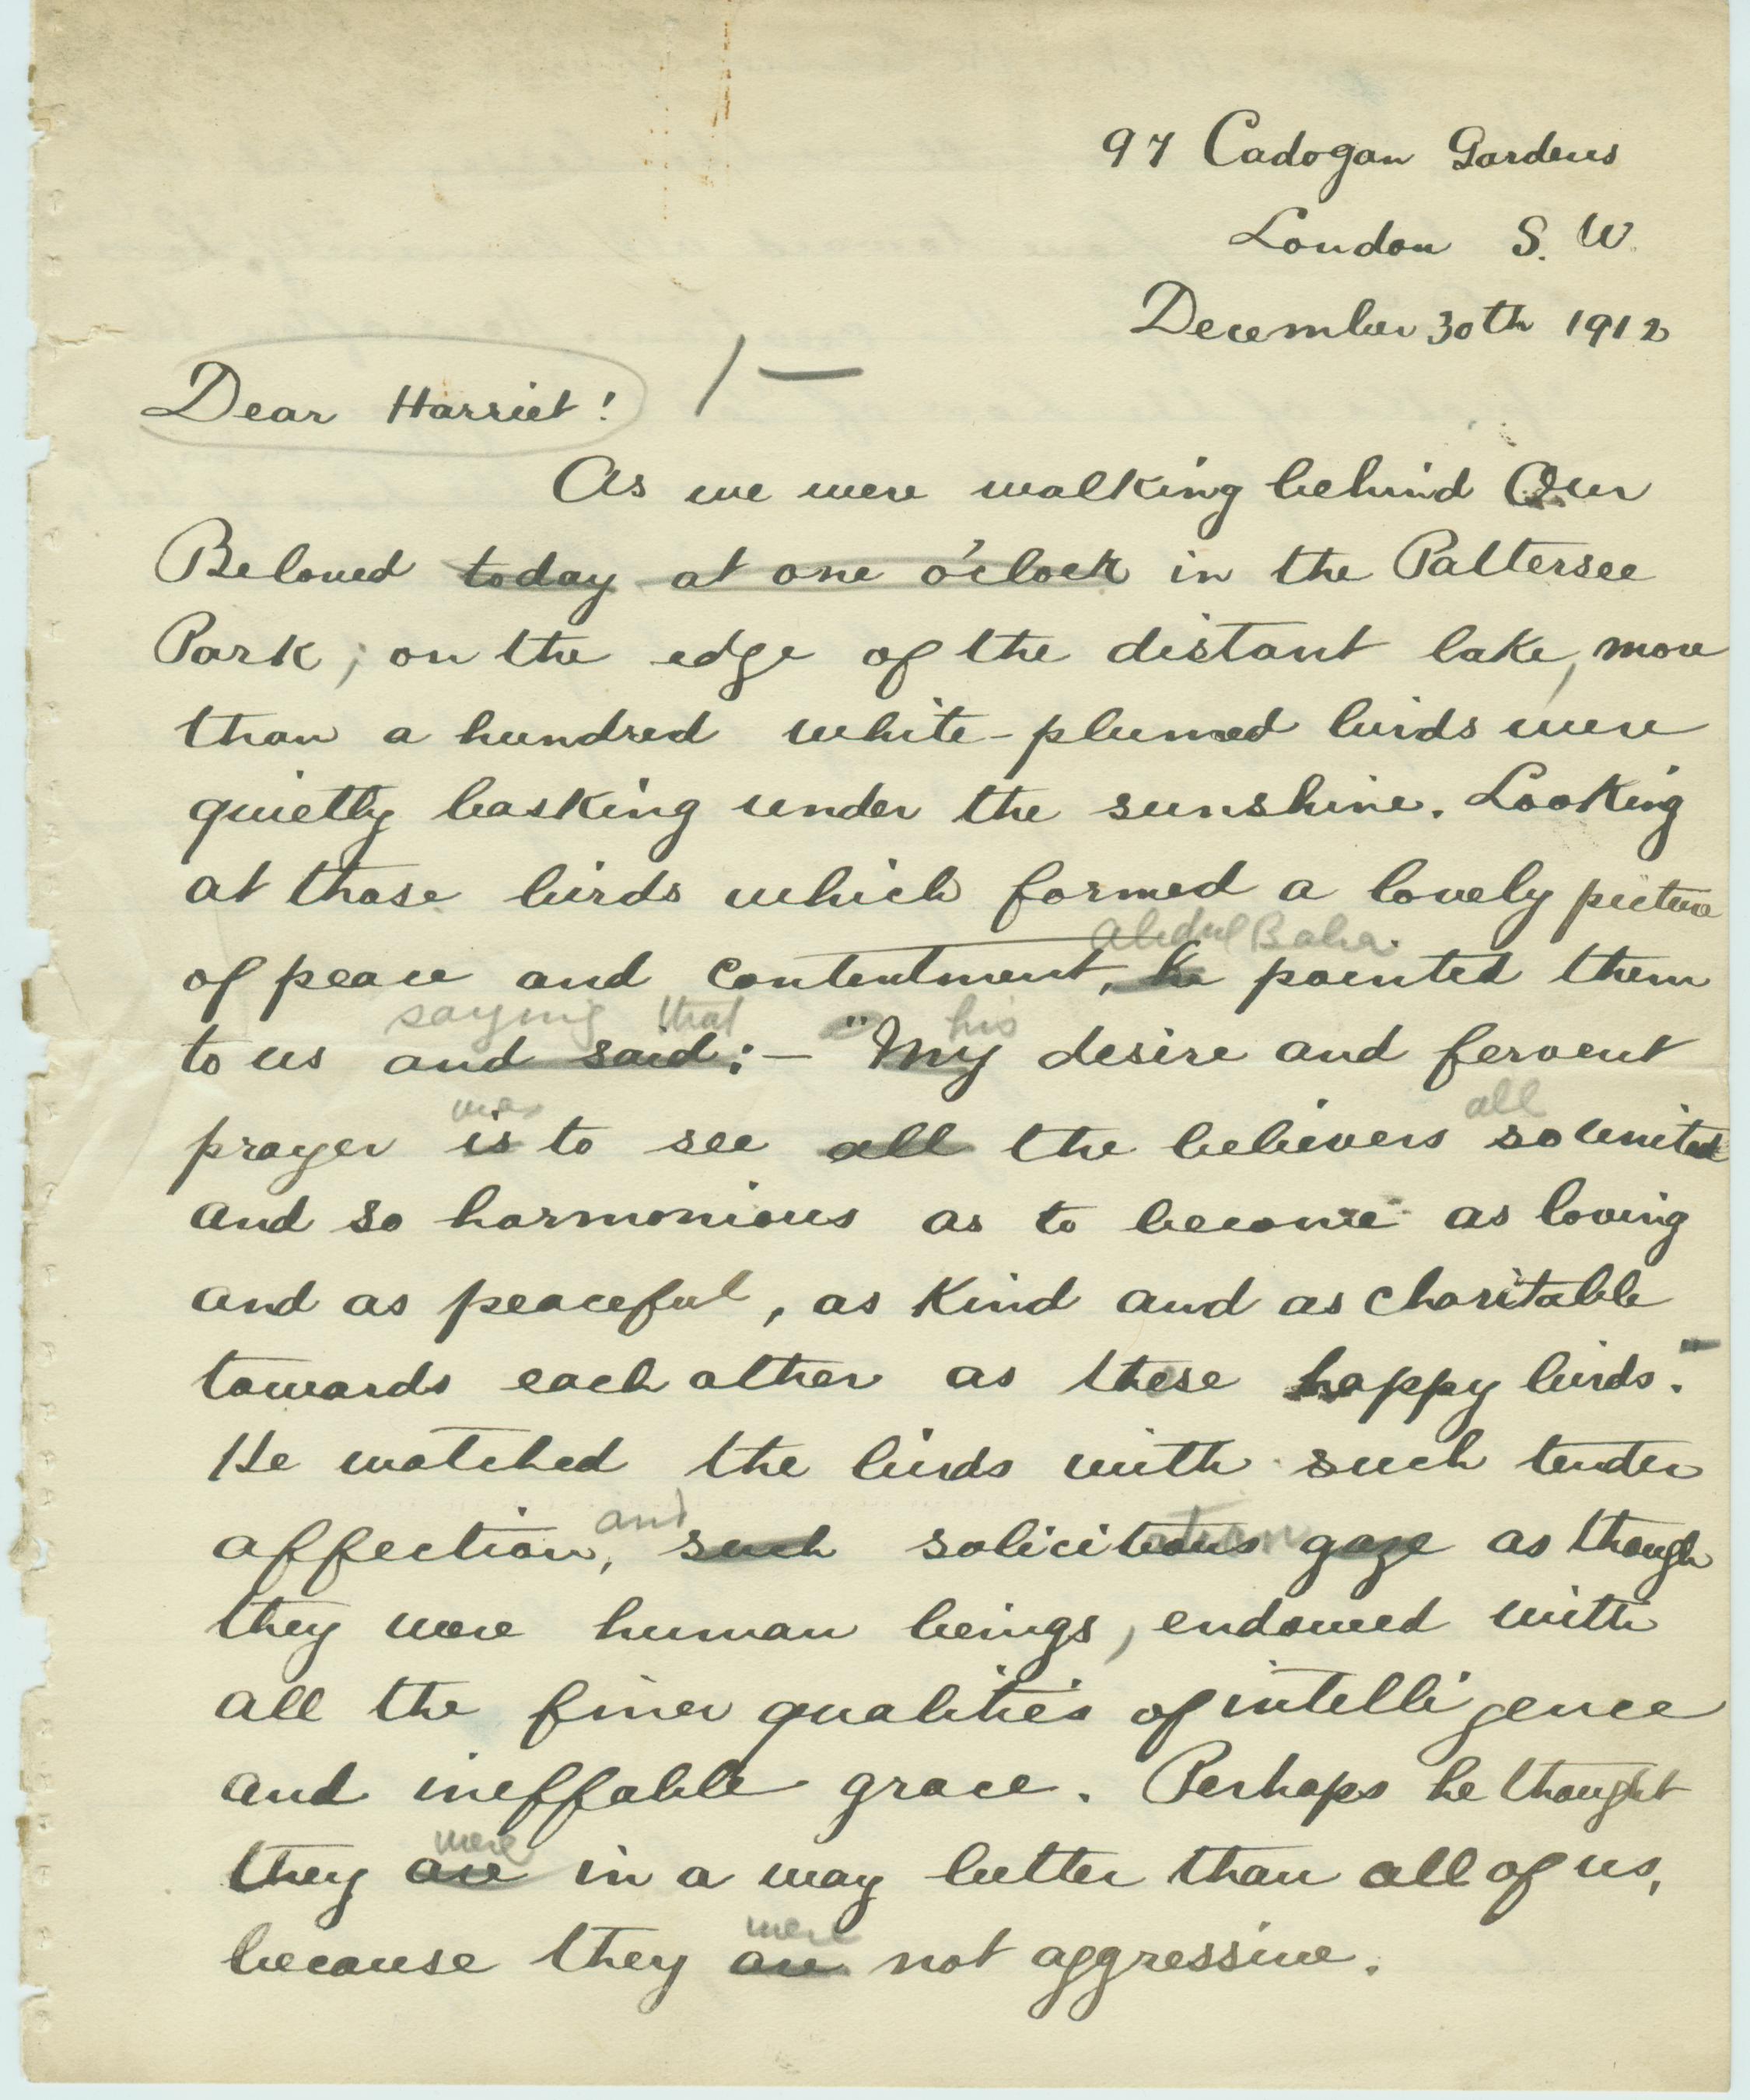 97 Cadogan Gardens
London S. W.
December 30th 1912
Dear Harriet! 1 —
As we were walking behind Our
Beloved today at one o'clock in the Pattersee
Park, on the edge of the distant lake, more
than a hundred white-plumed birds were
quietly basking under the sunshine. Looking
at those birds which formed a lovely picture
Abdul Baha
of peace and contentment, he pointed them
saying that his
to us and said:— "My desire and fervent
was all
prayer is to see all the believers so united
and so harmonious as to become as loving
and as peaceful, as kind and as charitable
towards each other as these happy birds."
He watched the birds with such tender
and
affection, such solicitous gaze as though
they were human beings, endowed with
all the finer qualities of intelligence
and ineffable grace. Perhaps he thought
were
they are in a way better than all of us,
were
because they are not aggressive.